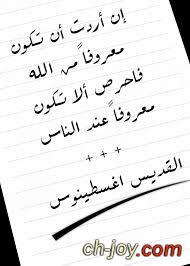 إن أردت أن تكون
معروفاً من الله
فاحرص ألا تكون
معروفاً عند الناس
+ + +
القديس اغسطينوس
ch-joy.com